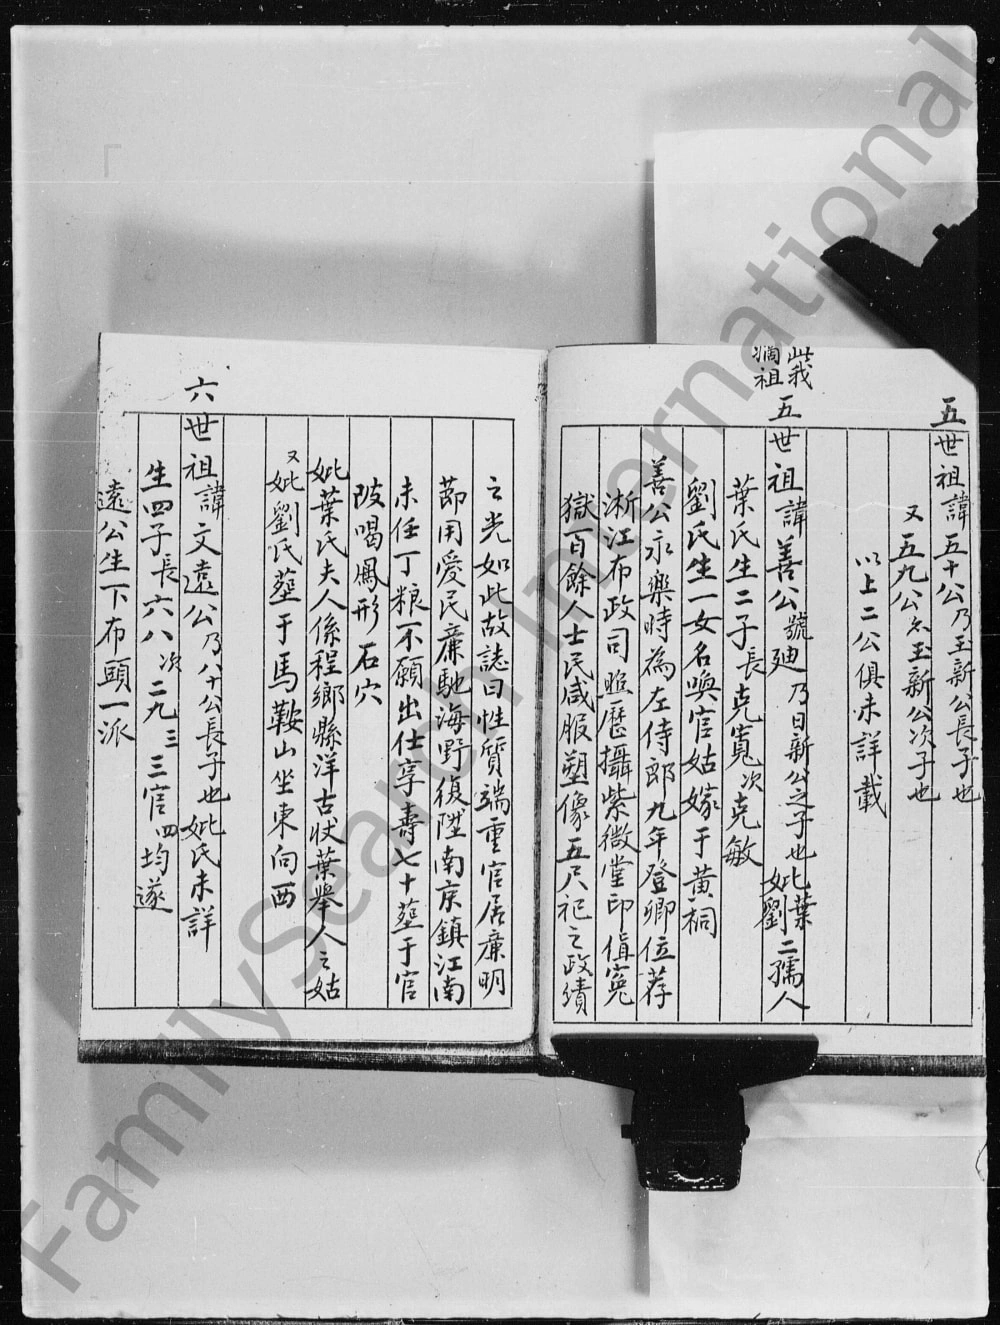 五世祖諱五十公乃玉新公長子也
又五九公乃玉新公次子也
以上二公俱未詳載
此我
祖
五世祖諱善公號廸乃日新公之子也妣葉劉二孺人
葉氏生二子長克寬次克敏
劉氏生一女名喚官姑嫁于黃桐
善公永樂時為左侍郎九年登卿位荐
淅江布政司照歷攝紫微堂印值冤
獄百餘人士民咸服塑像五尺祀之政績
之光如此故誌曰性質端重官居廉明
節用愛民廉馳海野復陞南京鎮江南
未任丁粮不願出仕享壽七十塟于官
陂喝鳳形石穴
妣葉氏夫人係程鄉縣洋古狀葉舉人之姑
又妣劉氏塟于馬鞍山坐東向西
六世祖諱文遠公乃八十公長子也妣氏未詳
生四子長六八次二九三三官四均遂
遠公生下布頭一派
FamilySearch International